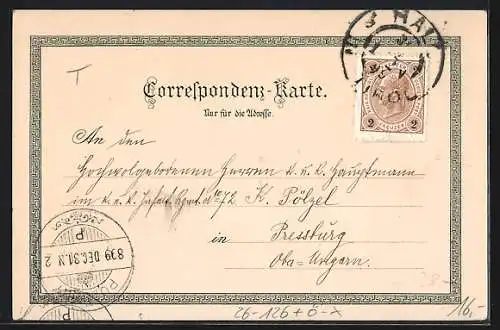 Correspondenz-Karte.
Nur für die Adresse.
2 2
An den
Hochwolgeborenen Herren k. u. k. Hauptmann
im k. u. k. Infant. Rgmt. No 72 K. Pölzel
in
Pressburg
Ob. Ungarn.
899 DEC.31.N 2
P
P
26-126+Ö-X
16,-